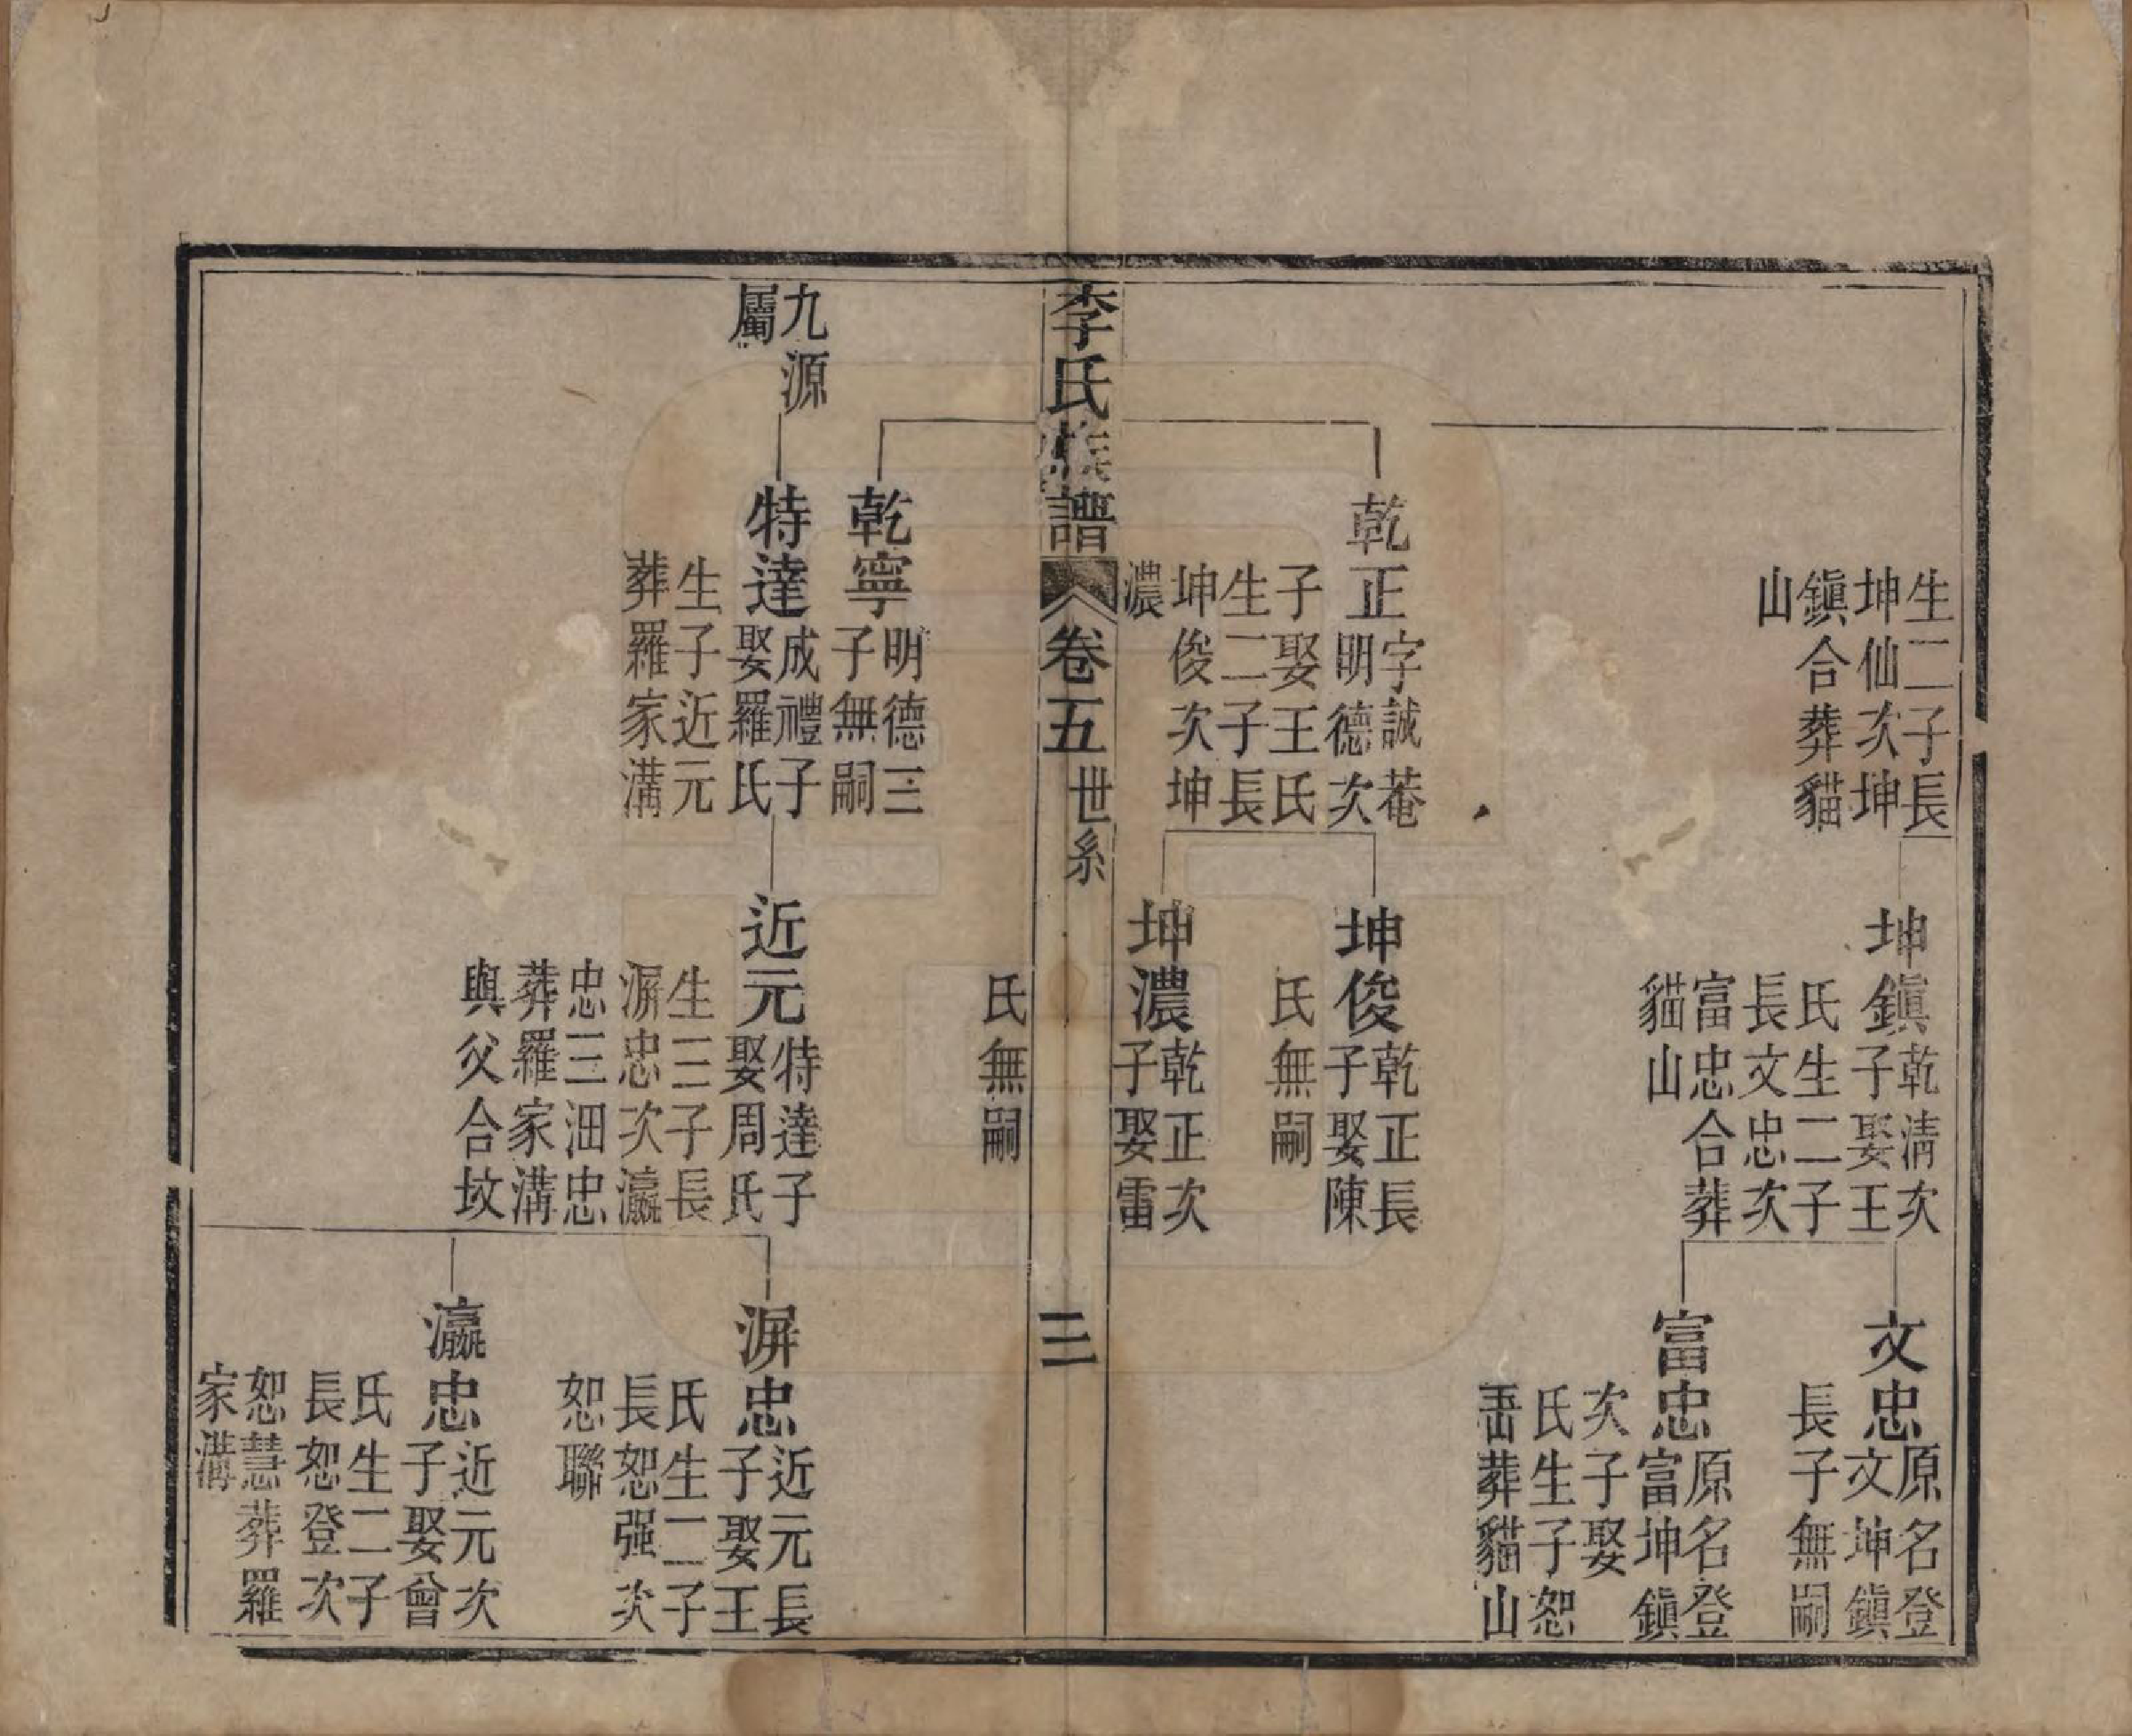 生二子長
坤仙次坤
鎭合葬貓
山
坤鎭
乾淸次
子娶王
氏生二子
長文忠次
富忠合葬
貓山
文忠
原名登
文坤鎭
長子無嗣
富忠
原名登
富坤鎭
次子娶
氏生子恕
葬貓山
乾正
字誠菴
明德次
子娶王氏
生二子長
坤俊次坤
濃
坤俊
乾正長
子娶陳
氏無嗣
坤濃
乾正次
子娶雷
氏無嗣
李氏族譜
卷五
世系
三
乾寧
明德三
子無嗣
九源
屬
特達
成禮子
娶羅氏
生子近元
葬羅家溝
近元
特達子
娶周氏
生三子長
濵忠次瀛
忠三沺忠
葬羅家溝
與父合墳
濵忠
近元長
子娶王
氏生二子
長恕强次
恕聯
瀛忠
近元次
子娶曾
氏生二子
長恕登次
恕慧葬羅
家溝